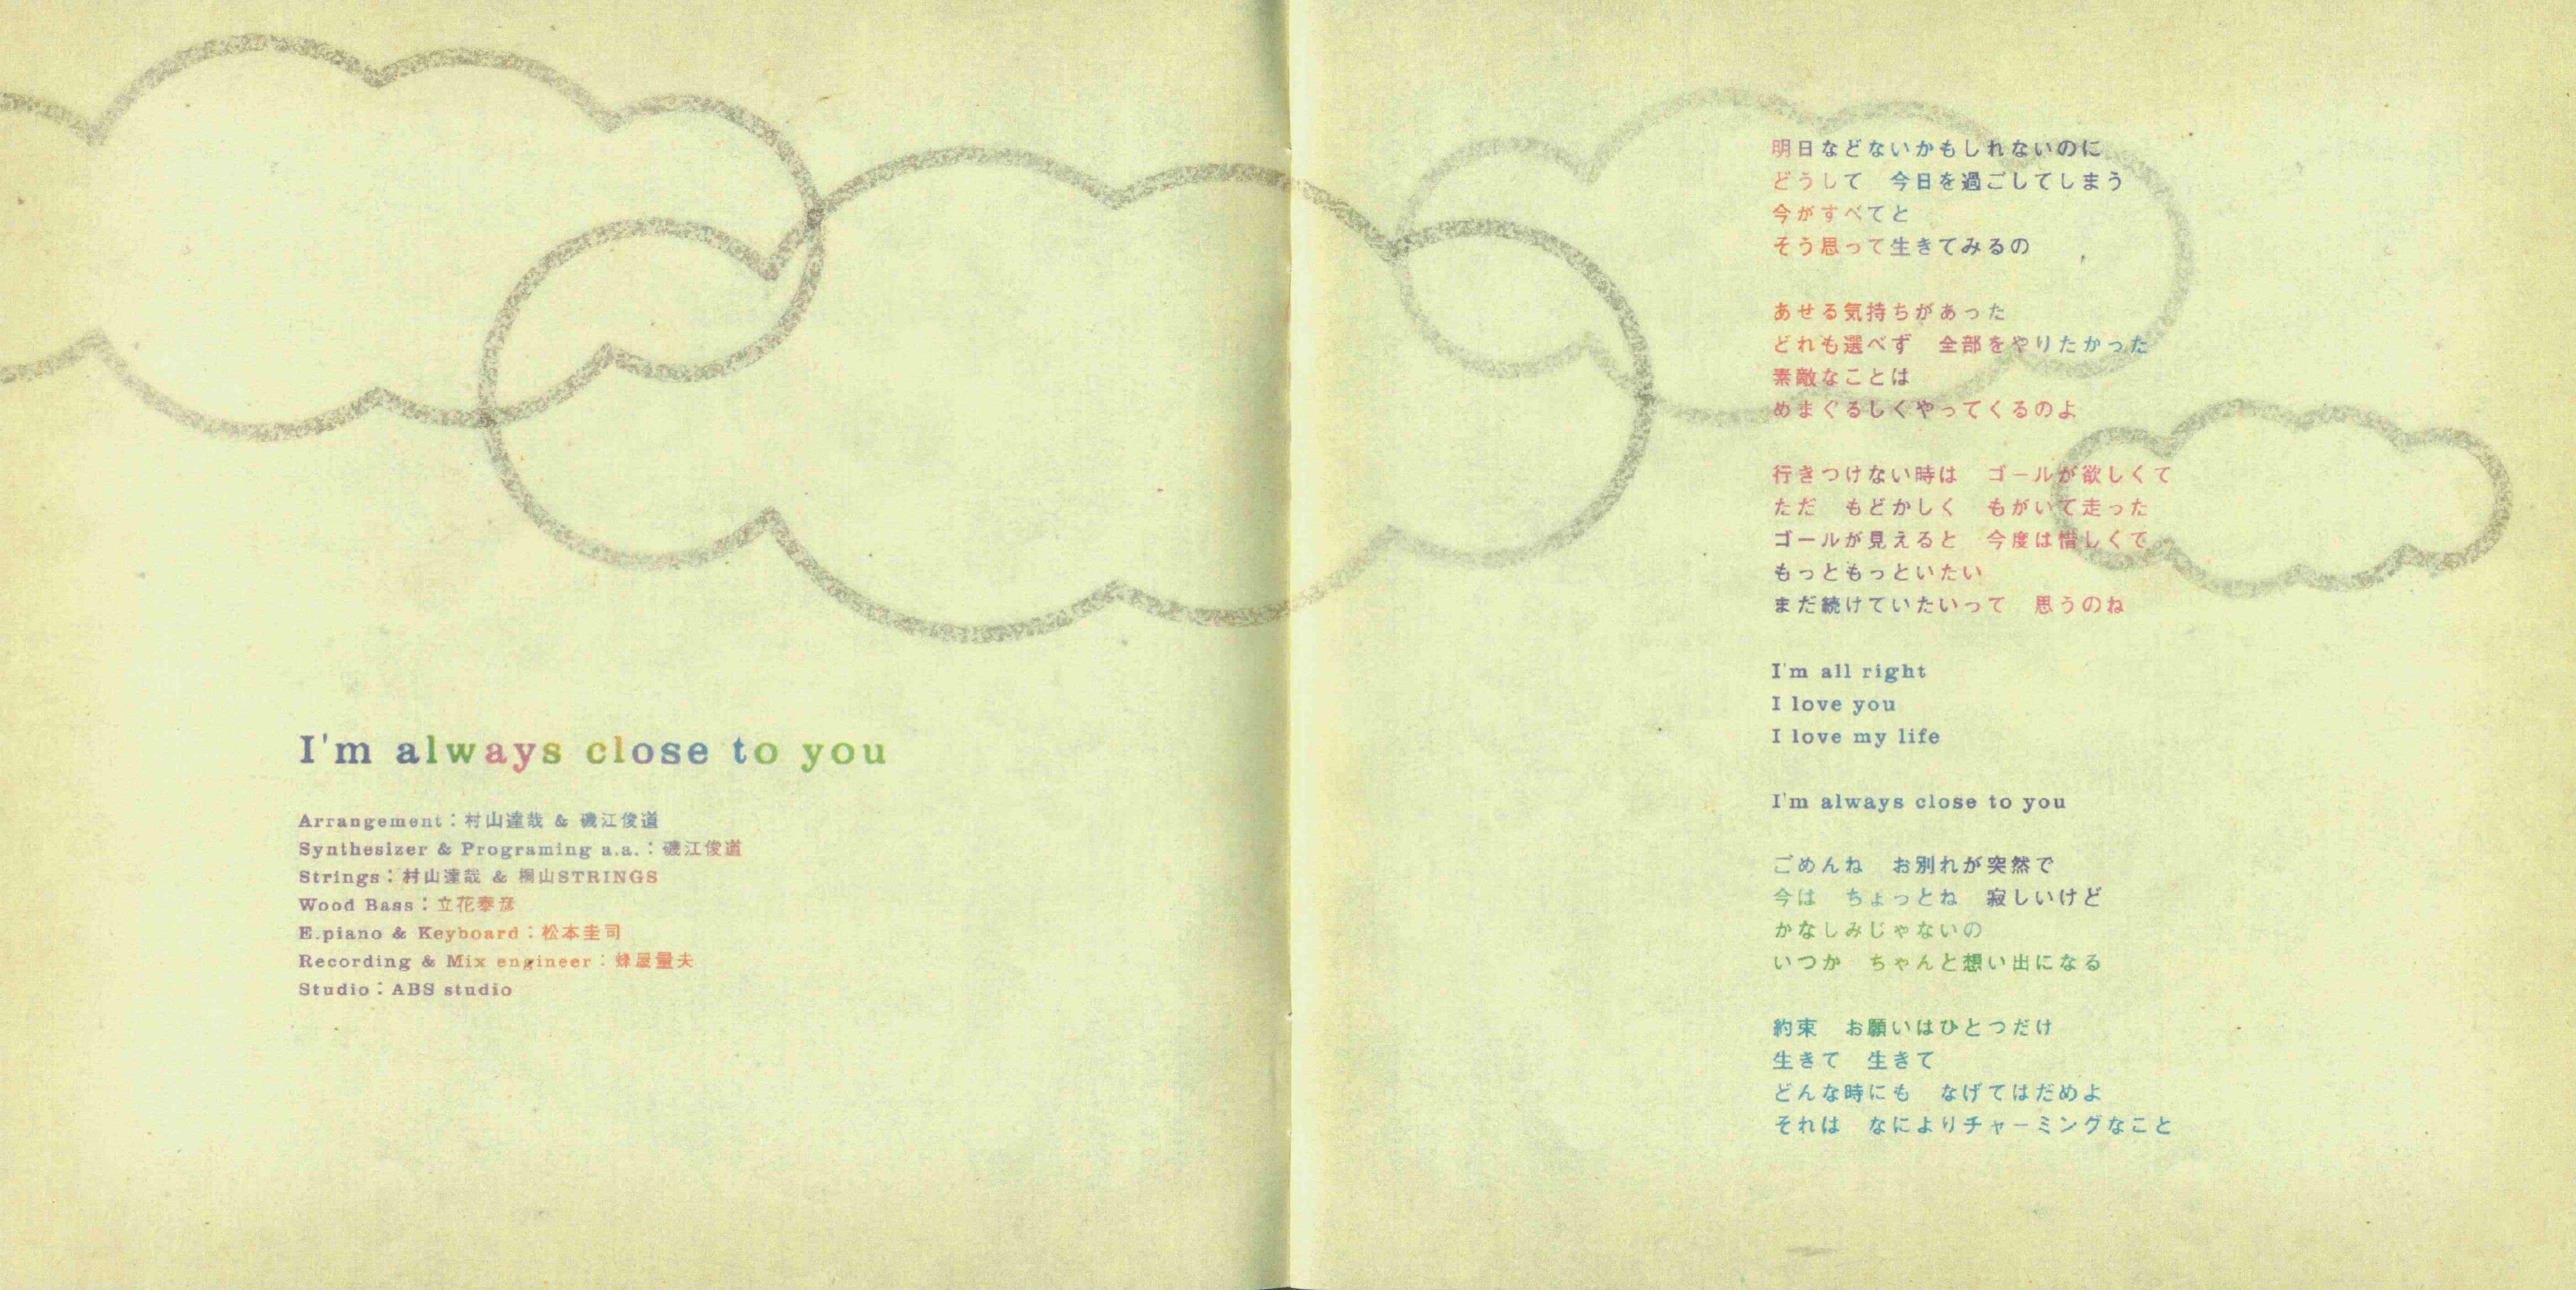 I'm always close to you
Arrangement：村山達哉 & 磯江俊道
Synthesizer & Programing a.a.：磯江俊道
Strings：村山達哉 & 桐山STRINGS
Wood Bass：立花泰彦
E.piano & Keyboard：松本圭司
Recording & Mix engineer：蜂屋量夫
Studio：ABS studio
明日などないかもしれないのに
どうして　今日を過ごしてしまう
今がすべてと
そう思って生きてみるの
あせる気持ちがあった
どれも選べず　全部をやりたかった
素敵なことは
めまぐるしくやってくるのよ
行きつけない時は　ゴールが欲しくて
ただ　もどかしく　もがいて走った
ゴールが見えると　今度は惜しくて
もっともっといたい
まだ続けていたいって　思うのね
I'm all right
I love you
I love my life
I'm always close to you
ごめんね　お別れが突然で
今は　ちょっとね　寂しいけど
かなしみじゃないの
いつか　ちゃんと想い出になる
約束　お願いはひとつだけ
生きて　生きて
どんな時にも　なげてはだめよ
それは　なによりチャーミングなこと